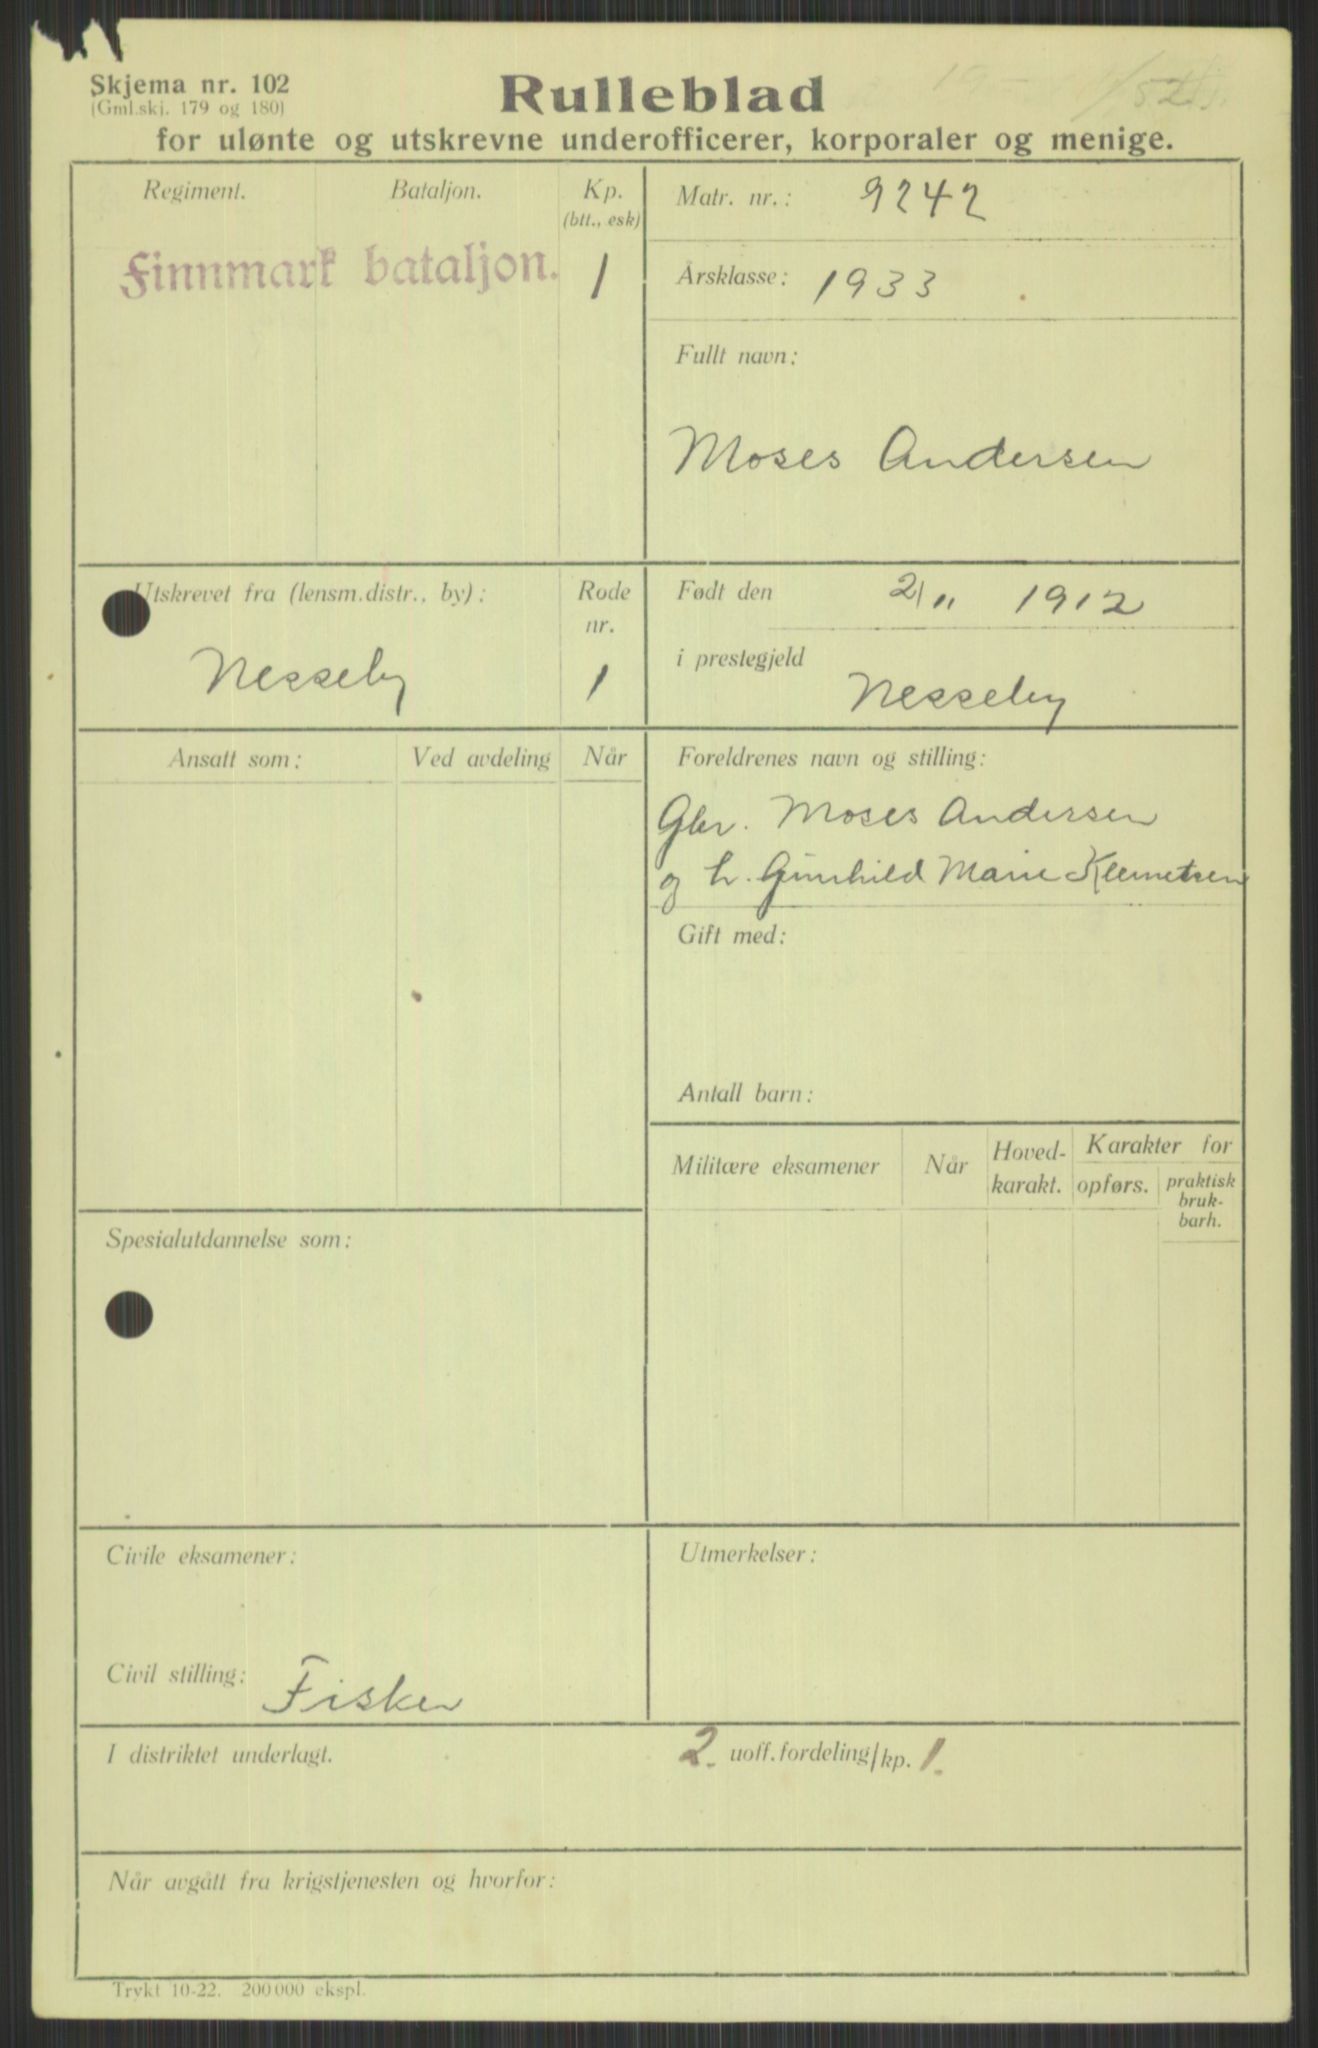 Skjema nr. 102
(Gml.skj. 179 og 180)
Rulleblad
for ulønte og utskrevne underofficerer, korporaler og menige.
Regiment. Bataljon. Kp.
(btt., esk)
Finnmark bataljon. 1
Matr. nr.: 9242
Årsklasse: 1933
Fullt navn:
Moses Andersen
Utskrevet fra (lensm.distr., by): Rode
nr.
Nesseby 1
Født den 2/11 1912
i prestegjeld
Nesseby
Ansatt som: Ved avdeling Når
Foreldrenes navn og stilling:
Gbr. Moses Andersen
og h. Gunhild Marie Klemetsen
Gift med:
Antall barn:
Militære eksamener Når Hoved-
karakt. Karakter for
opførs. praktisk
bruk-
barh.
Spesialutdannelse som:
Civile eksamener:
Utmerkelser:
Civil stilling: Fisker
I distriktet underlagt. 2. uoff. fordeling/kp. 1.
Når avgått fra krigstjenesten og hvorfor:
Trykt 10-22. 200 000 ekspl.